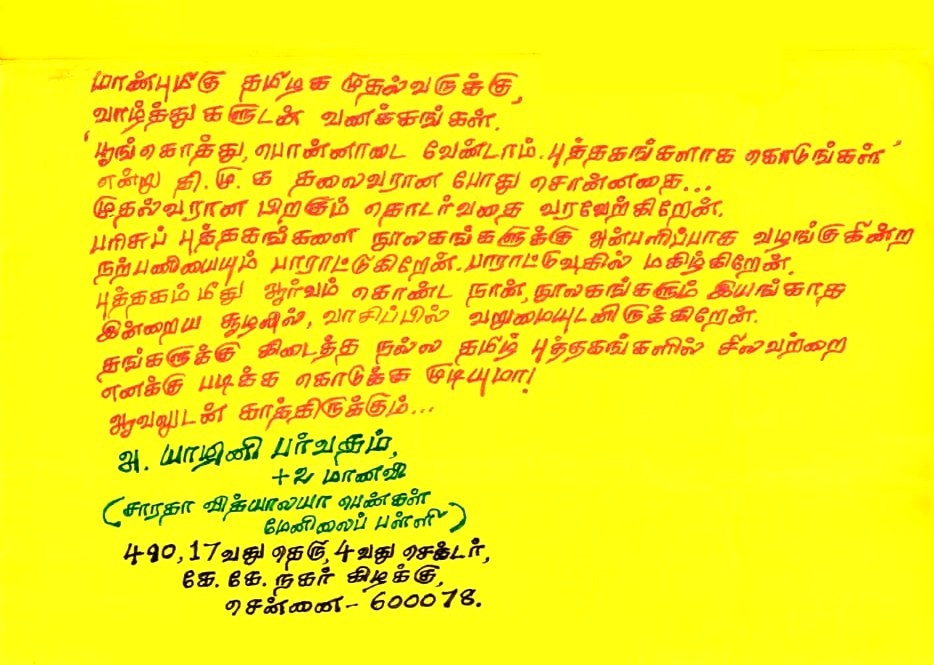 மாண்புமிகு தமிழக முதல்வருக்கு,
வாழ்த்துகளுடன் வணக்கங்கள்.
'பூங்கொத்து, பொன்னாடை வேண்டாம். புத்தகங்களாக கொடுங்கள்'
என்று தி.மு.க தலைவரான போது சொன்னதை...
முதல்வரான பிறகும் தொடர்வதை வரவேற்கிறேன்.
பரிசுப் புத்தகங்களை நூலகங்களுக்கு அன்பளிப்பாக வழங்குகின்ற
நற்பணியையும் பாராட்டுகிறேன். பாராட்டுவதில் மகிழ்கிறேன்.
புத்தகம் மீது ஆர்வம் கொண்ட நான், நூலகங்களும் இயங்காத
இன்றைய சூழலில், வாசிப்பில் வறுமையுடனிருக்கிறேன்.
தங்களுக்கு கிடைத்த நல்ல தமிழ் புத்தகங்களில் சிலவற்றை
எனக்கு படிக்க கொடுக்க முடியுமா!
ஆவலுடன் காத்திருக்கும்...
அ. யாழினி பர்வதம்,
+2 மாணவி
(சாரதா வித்யாலயா பெண்கள்
மேனிலைப் பள்ளி)
490, 17வது தெரு, 4வது செக்டர்,
கே. கே. நகர் கிழக்கு,
சென்னை - 600078.